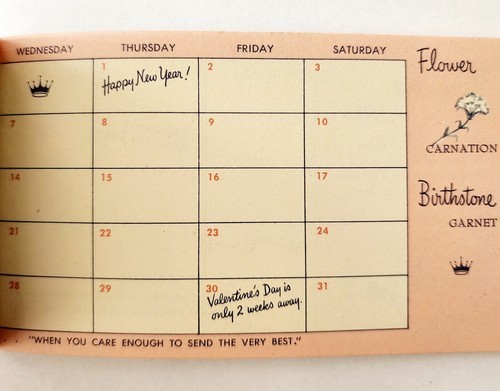 WEDNESDAY THURSDAY FRIDAY SATURDAY
1 2 3
Happy New Year!
7 8 9 10
14 15 16 17
21 22 23 24
28 29 30 31
Valentine's Day is
only 2 weeks away.
"WHEN YOU CARE ENOUGH TO SEND THE VERY BEST."
Flower
CARNATION
Birthstone
GARNET